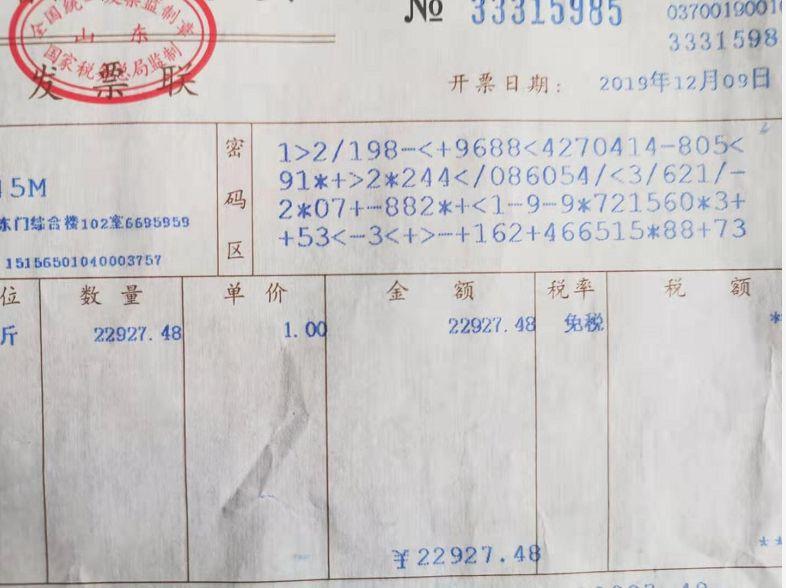 全国统一发票监制章
山东
国家税务总局监制
发票联
№ 33315985
037001900
3331598
开票日期: 2019年12月09日
密码区
1>2/198-<+9688<4270414-805<
91*+>2*244</086054/<3/621/-
2*07+-882*+<1-9-9*721560*3+
+53<-3<+>-+162+466515*88+73
15M
东门综合楼102室6695959
15156501040003757
位 数量 单价 金额 税率 税额
斤 22927.48 1.00 22927.48 免税 *
¥22927.48 **